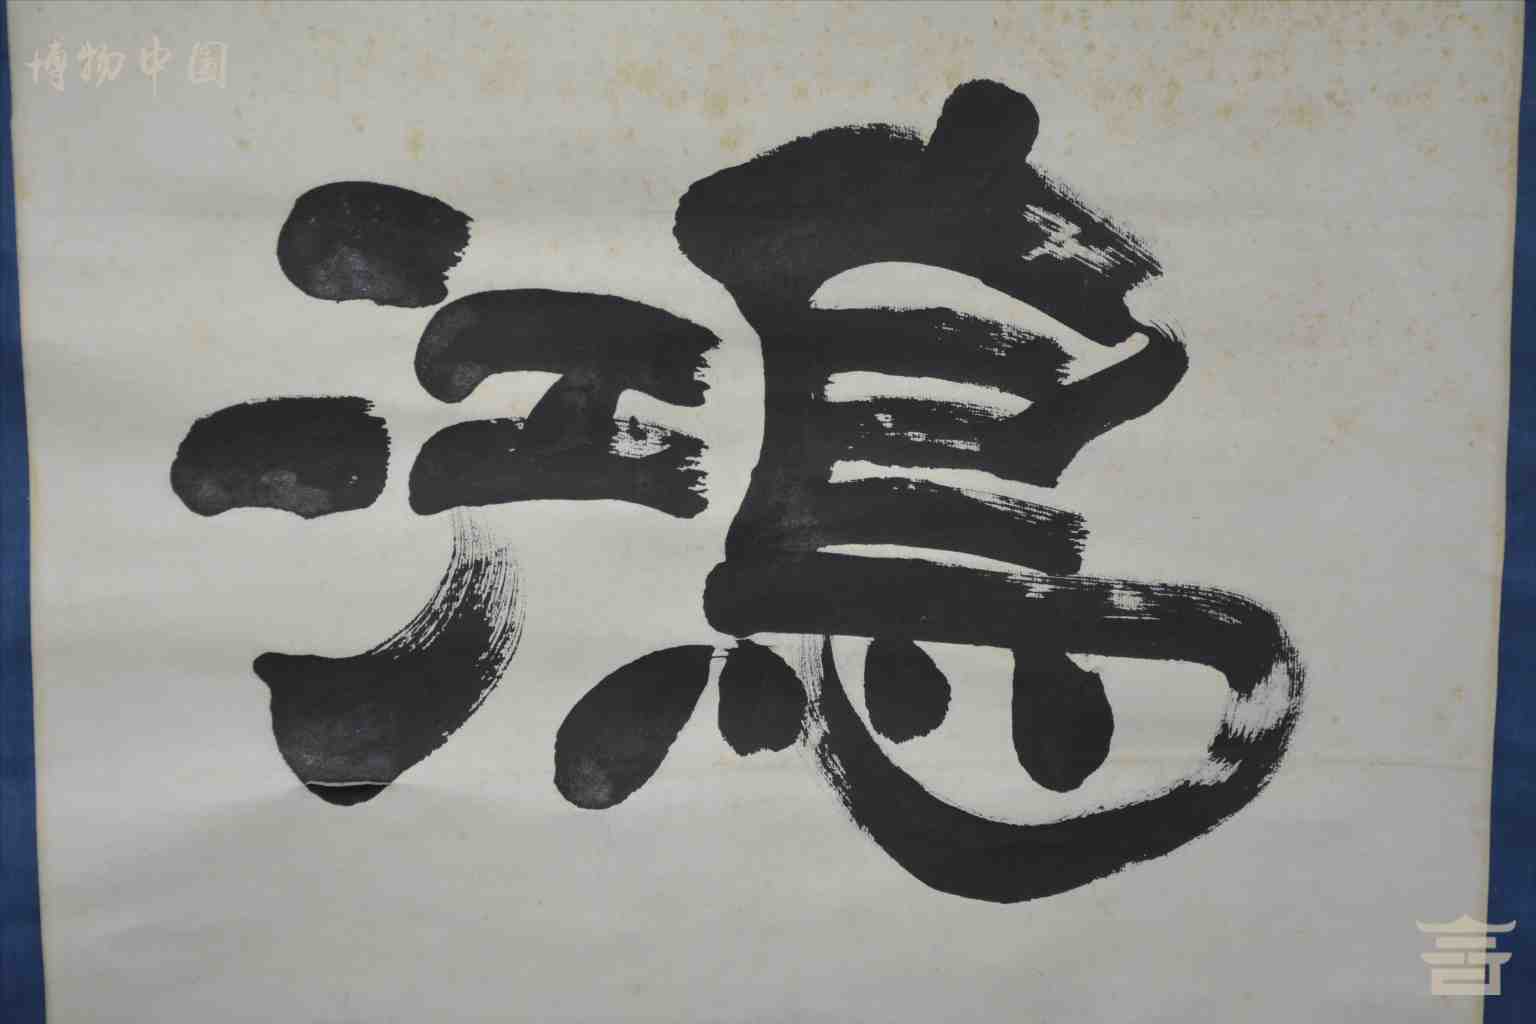 博物中国
鴻